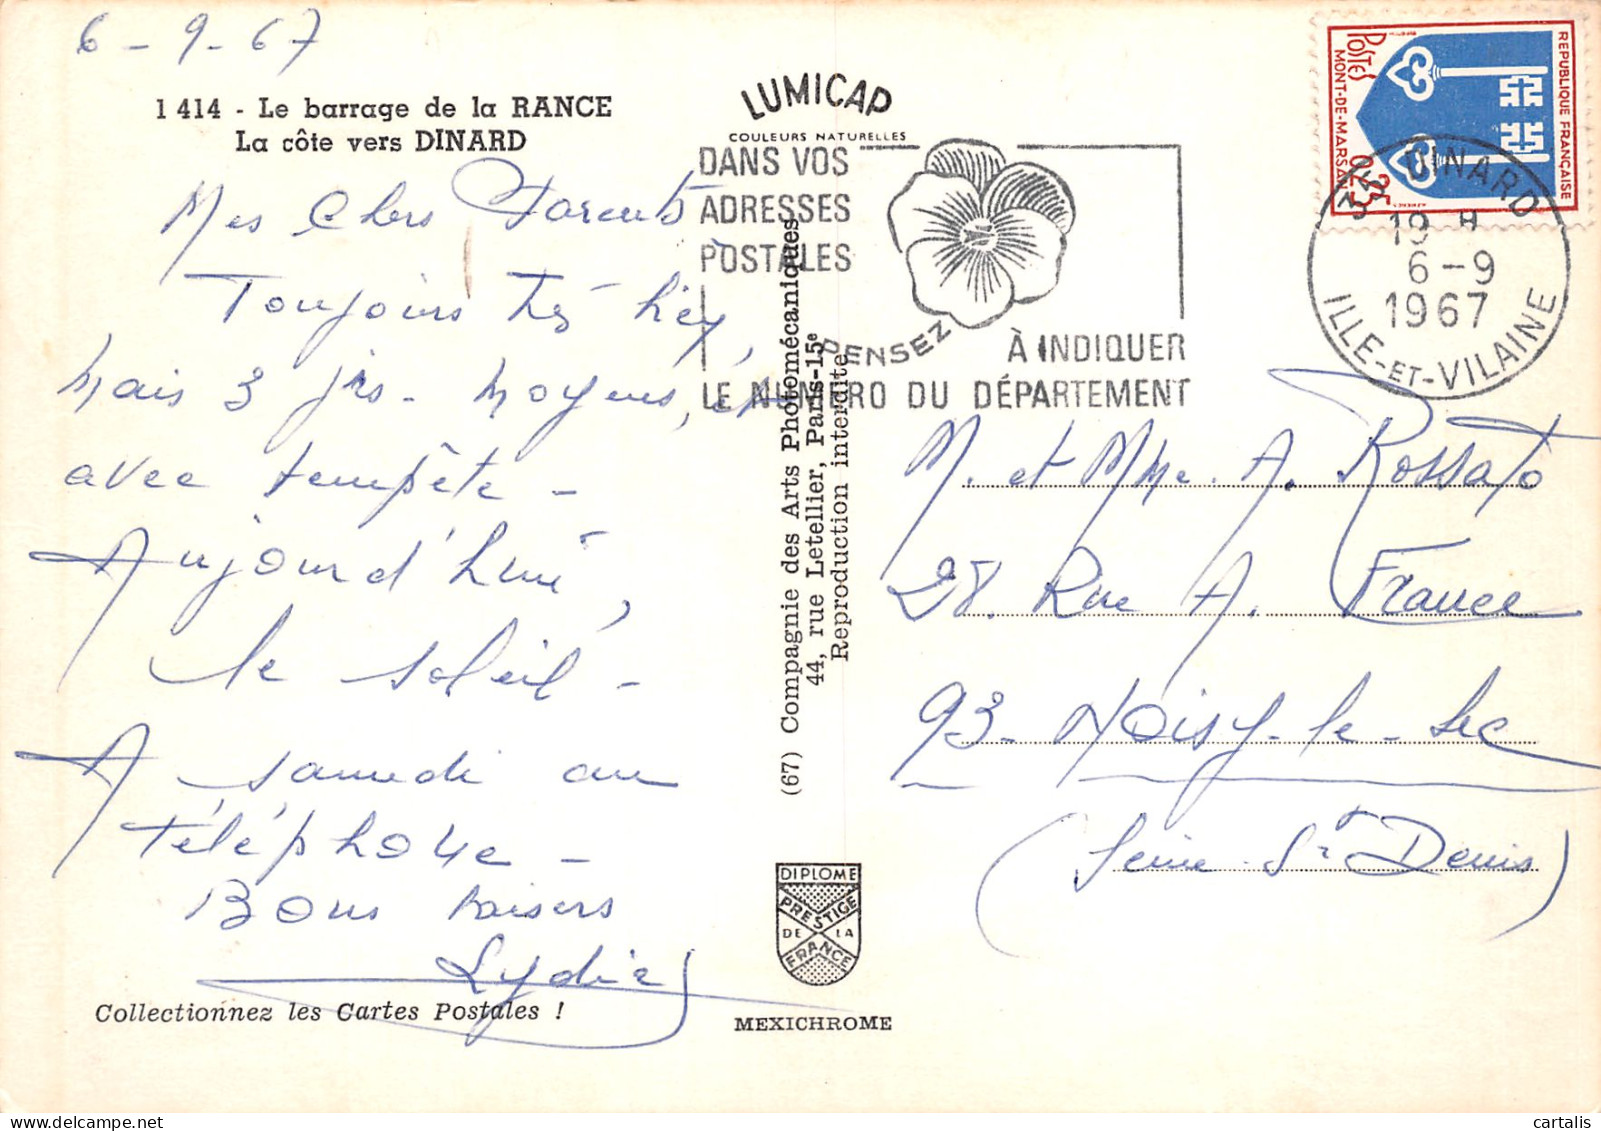 6-9-67
1 414 - Le barrage de la RANCE
La côte vers DINARD
Mes Chers Parents
Toujours très
Mais 3 jrs. Moyens, et
avec tempête -
Aujourd'hui,
le soleil -
A samedi au
téléphone -
Bons baisers
Lydie
Collectionnez les Cartes Postales !
LUMICAP
COULEURS NATURELLES
DANS VOS
ADRESSES
POSTALES
PENSEZ
À INDIQUER
LE NUMÉRO DU DÉPARTEMENT
(67) Compagnie des Arts Photomécaniques
44, rue Letellier, Paris-15e
Reproduction interdite
DIPLOME
PRESTIGE
DE LA
FRANCE
MEXICHROME
REPUBLIQUE FRANÇAISE
POSTES
MONT-DE-MARSAN
DINARD
19 H
6-9
1967
ILLE-ET-VILAINE
M. et Mme. A. Rossato
28. Rue A. France
93- Noisy-le-Sec
(Seine St Denis)
cartalis